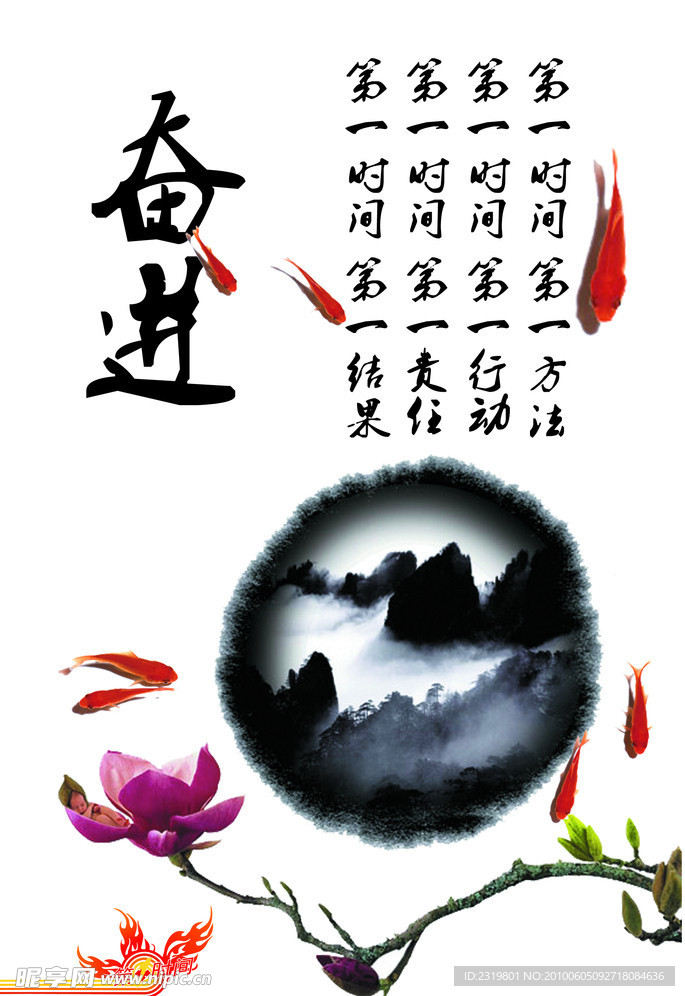 奋进
第一时间第一方法
第一时间第一行动
第一时间第一责任
第一时间第一结果
第一时间
昵享网 www.nipic.cn
ID:2319801 NO:20100605092718084636